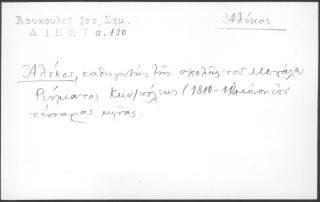 Κουκουλές Ιστ. Σημ.
Δ Ι Ε Ε 7 σ. 180
Αλέκος
Αλέκος, καθηγητής της σχολής του Μεγάλου
Ρεύματος Κων/πόλεως (1810-11) μόνον επί
τέσσαρας μήνας.